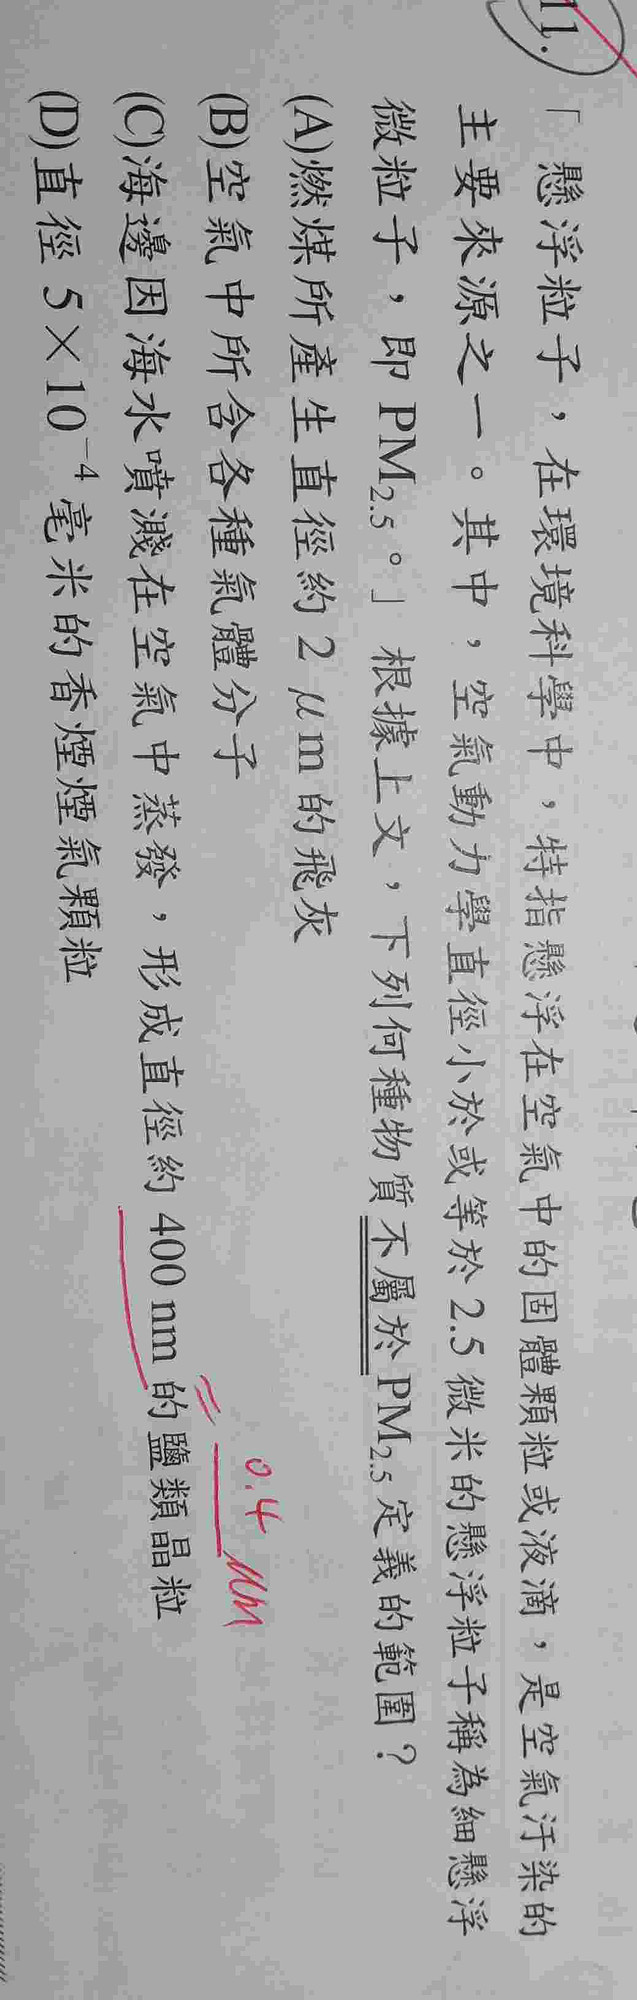 11.
「懸浮粒子，在環境科學中，特指懸浮在空氣中的固體顆粒或液滴，是空氣汙染的
主要來源之一。其中，空氣動力學直徑小於或等於 2.5 微米的懸浮粒子稱為細懸浮
微粒子，即 PM₂.₅。」根據上文，下列何種物質不屬於 PM₂.₅ 定義的範圍？
(A)燃煤所產生直徑約 2 μm 的飛灰
(B)空氣中所含各種氣體分子
(C)海邊因海水噴濺在空氣中蒸發，形成直徑約 400 nm 的鹽類晶粒
= 0.4 μm
(D)直徑 5×10⁻⁴ 毫米的香煙煙氣顆粒